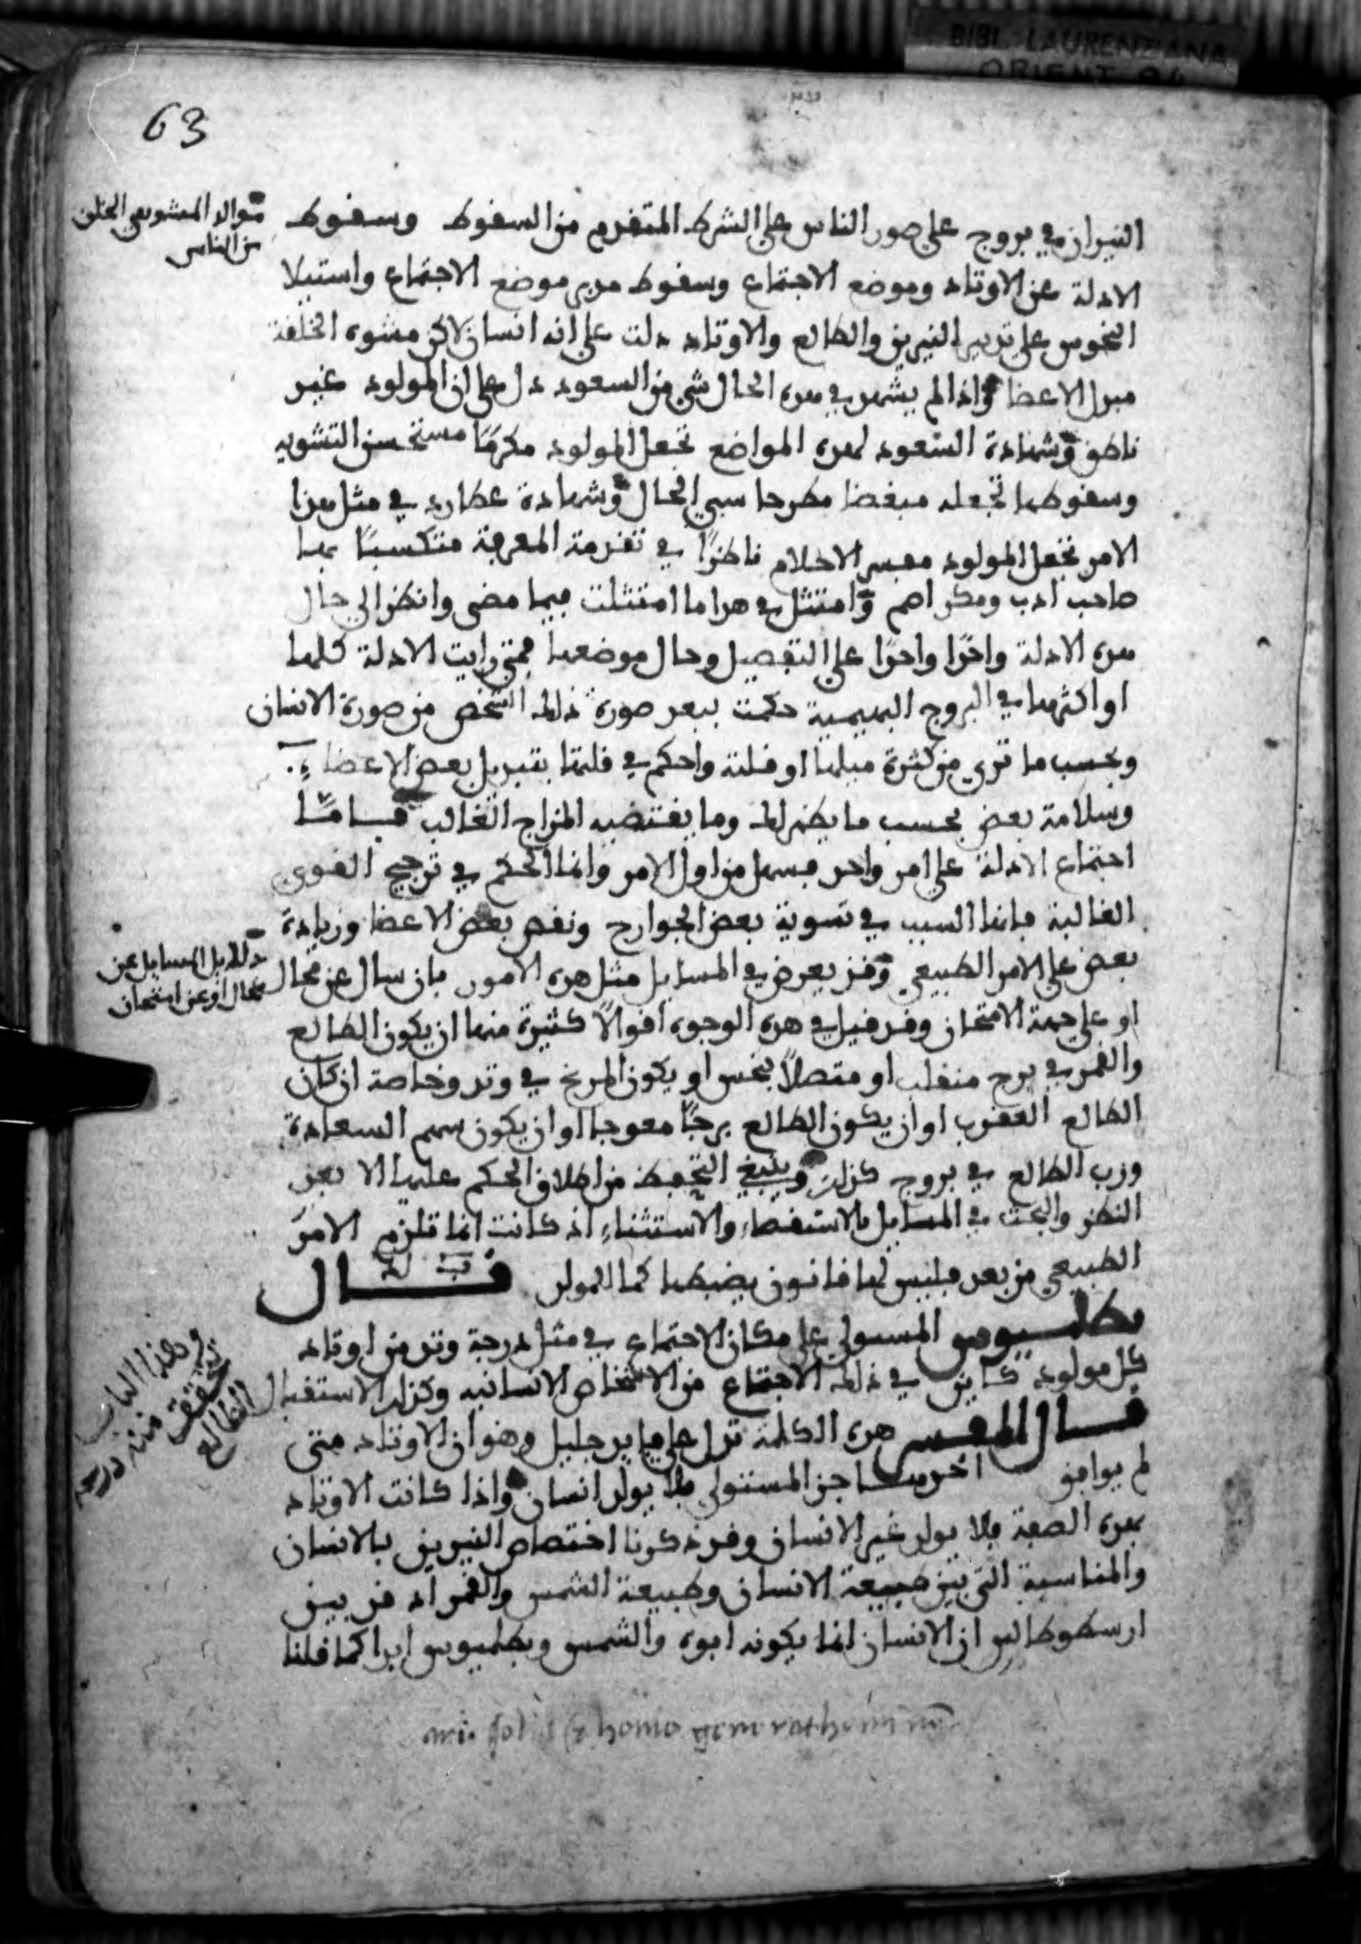 BIBL. LAURENZIANA
ORIENT. 94
63
النيران في بروج على صور الناس على الشرط المتقدم من السقوط وسقوط
مواليد المشوهي الخلق
من الناس
الادلة عن الاوتاد وموضع الاجتماع وسقوط مدبر موضع الاجتماع واستيلا
النحوس على تدبير النيرين والطالع والاوتاد دلت على انه انسان لاكن مشوه الخلقة
مبدل الاعضا واذا لم يشهد في هذه الحال شي من السعود دل على ان المولود غير
ناطق وشهادة السعود لهذه المواضع تجعل المولود مكرمًا مستحسن التشويه
وسقوطها تجعله مبغضا مطرحا سيي الحال وشهادة عطارد في مثل هذا
الامر تجعل المولود معبر الاحلام ناظرًا في تقدمة المعرفة متكسبًا بها
صاحب ادب ومكر اهم وامتثل في هذا ما امتثلت فيما مضى وانظر الى حال
هذه الادلة واحدًا واحدًا على التفصيل وحال موضعها فمتى رايت الادلة كلها
او اكثرها في البروج البهيمية حكمت ببعد صورة ذلك الشخص من صورة الانسان
وبحسب ما ترى من كثرة ميلها او قلته واحكم في قلتها بتبديل بعض الاعضاءِ
وسلامة بعض بحسب ما يظهر لك وما يقتضيه المزاج الغالب فـامّـا
اجتماع الادلة على امر واحد فسهل من اول الامر وانما الحكم في ترجيح القوى
الغالبة فانها السبب في تسوية بعض الجوارح ونقص بعض الاعضا وزيادة
بعض على الامر الطبيعي وقد يعرض في المسايل مثل هذه الامور بان سال عن محال
دلايل المسايل عن
محال او عن امتحان
او على جهة الامتحان وقد قيل في هذه الوجوه اقوالًا كثيرة منها ان يكون الطالع
والقمر في برج منقلب او متصلًا بنحس او يكون المريخ في وتد وخاصة ان كان
الطالع العقرب او ان يكون الطالع برجًا معوجا او ان يكون سهم السعادة
ورب الطالع في بروج كذلك وينبغي التحفظ من اطلاق الحكم عليها الا بعد
النظر والبحث في المسايل بالاستقصاءِ والاستثناءِ اذ كانت انما تلزم الامر
الطبيعي من بعد فليس لها قانون يضبطها كما للمولد قـــال
بطلـميوس المستولي على مكان الاجتماع في مثل درجة وتد من اوتاد
كل مولود كاين في ذلك الاجتماع من الاشخاص الانسانيه وكذلك الاستقبال
وهذا الباب
تحقق منه درجة
الطالع
قـال المفسر هذه الكلمة تدل على فايدة جليل وهو ان الاوتاد متى
لم يوافق احدها جز المستولي فلا يولد انسان واذا كانت الاوتاد
بهذه الصفة فلا يولد غير الانسان وقد ذكرنا اختصاص النيرين بالانسان
والمناسبة التي بين طبيعة الانسان وطبيعة الشمس والقمر اذ قد بين
ارسطوطاليس ان الانسان انما يكونه ابوه والشمس وبطلميوس ابدا كما قلنا
homo generat hominem